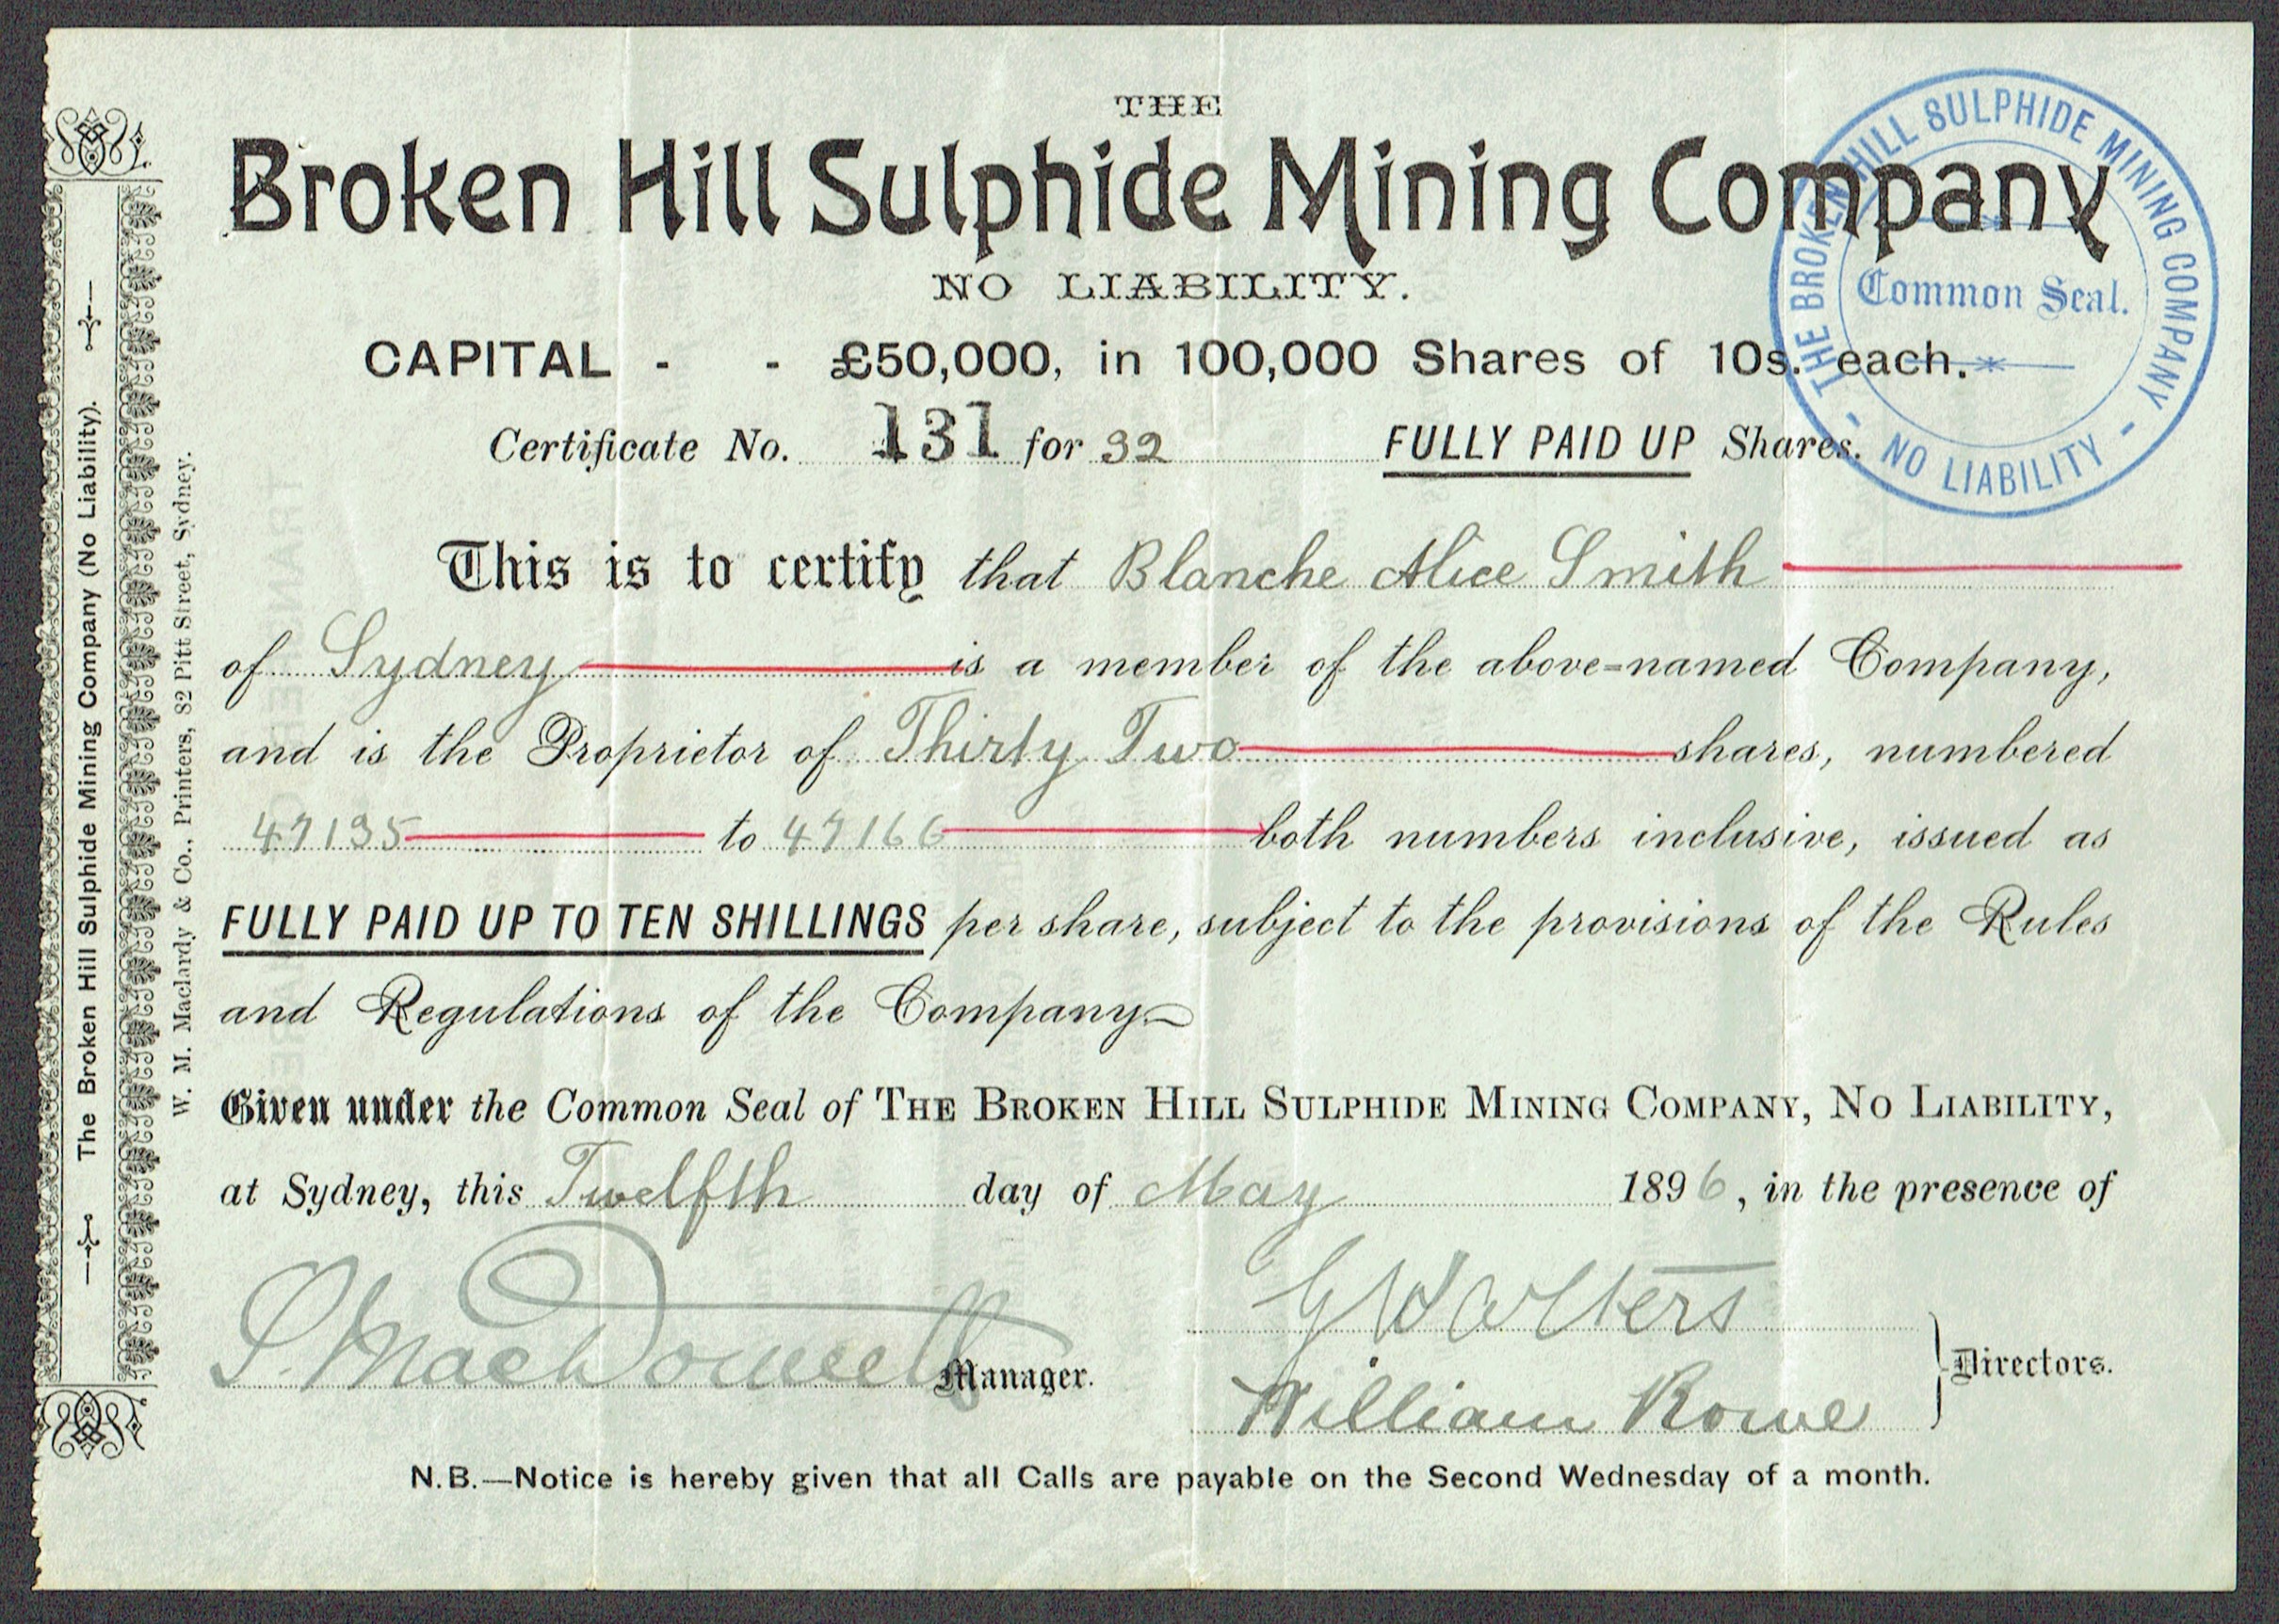 THE
Broken Hill Sulphide Mining Company
NO LIABILITY.
CAPITAL - - £50,000, in 100,000 Shares of 10s. each.
Certificate No. 131 for 32 FULLY PAID UP Shares.
This is to certify that Blanche Alice Smith
of Sydney is a member of the above-named Company,
and is the Proprietor of Thirty Two shares, numbered
47135 to 47166 both numbers inclusive, issued as
FULLY PAID UP TO TEN SHILLINGS per share, subject to the provisions of the Rules
and Regulations of the Company
Given under the Common Seal of THE BROKEN HILL SULPHIDE MINING COMPANY, NO LIABILITY,
at Sydney, this Twelfth day of May 1896, in the presence of
S. MacDowell Manager.
G Walters
William Rowe
Directors.
N.B.—Notice is hereby given that all Calls are payable on the Second Wednesday of a month.
THE BROKEN HILL SULPHIDE MINING COMPANY
- NO LIABILITY -
Common Seal.
The Broken Hill Sulphide Mining Company (No Liability).
W. M. Maclardy & Co., Printers, 82 Pitt Street, Sydney.